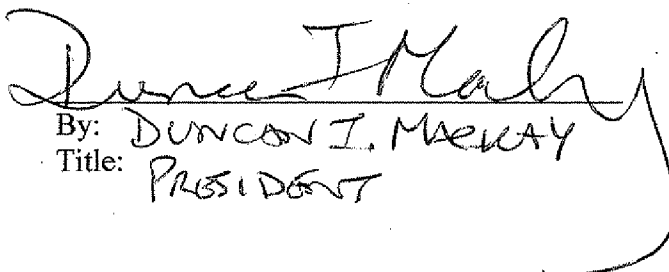 Duncan I Mackay
By: DUNCAN I. MACKAY
Title: PRESIDENT